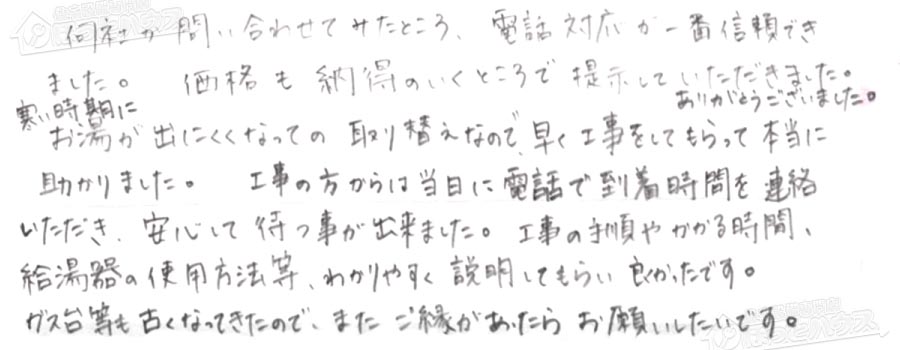 何社か問い合わせてみたところ、電話対応が一番信頼でき
ました。 価格も納得のいくところで提示していただきました。
ありがとうございました。
寒い時期に
お湯が出にくくなっての取り替えなので、早く工事をしてもらって本当に
助かりました。 工事の方からは当日に電話で到着時間を連絡
いただき、安心して待つ事が出来ました。工事の手順やかかる時間、
給湯器の使用方法等、わかりやすく説明してもらい良かったです。
ガス台等も古くなってきたので、またご縁があったらお願いしたいです。